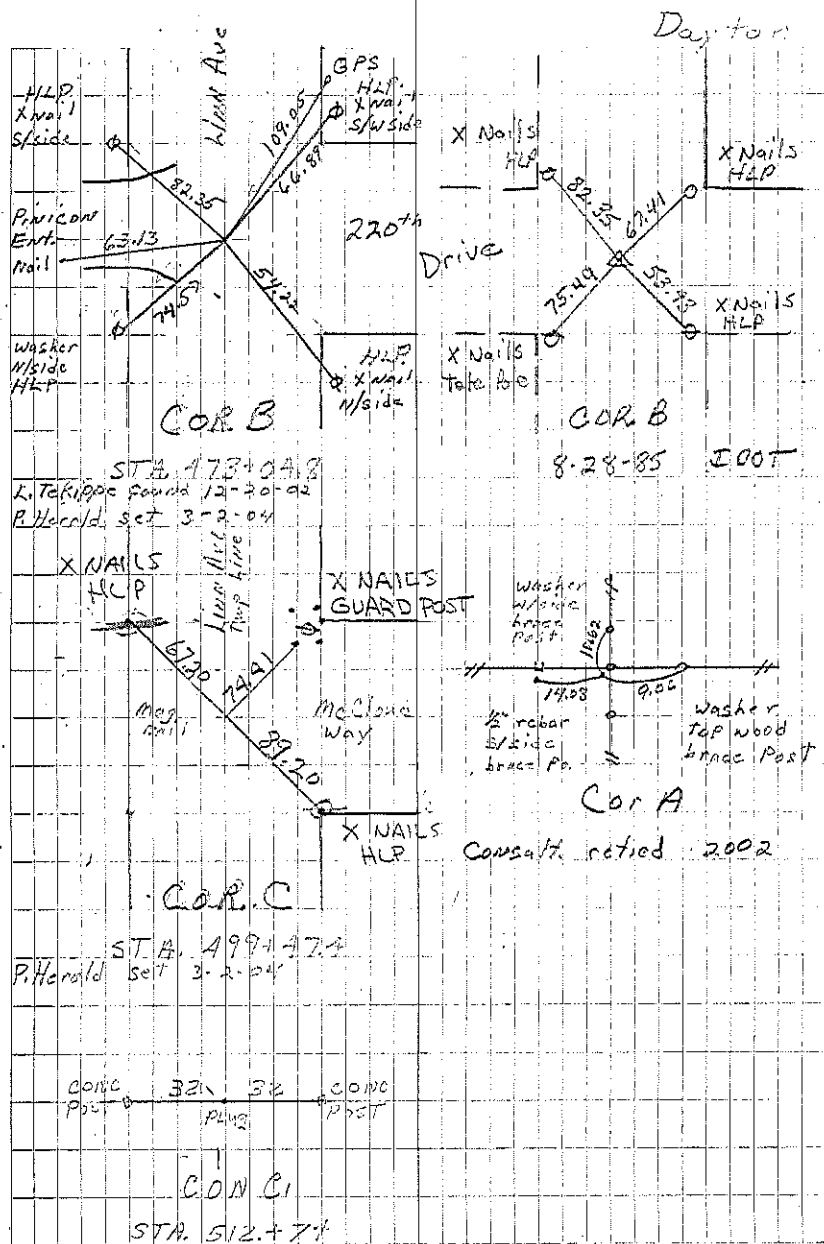 Dayton
Linn Ave
GPS
HLP
X Nail
S/W side
109.05
66.89
HLP
X Nail
S/side
82.35
Ent.
Nail
63.13
220th
Drive
74.57
54.22
Washer
N/side
HLP
HLP
X Nail
N/side
COR B
STA. 473+04.8
L. Tekippe found
P. Herold set 3-2-04
X Nails
HLP
X Nails
HLP
82.35
67.41
75.49
53.93
X Nails
X Nails
HLP
COR B
8-28-85 IDOT
X NAILS
HLP
Linn Ave
Twp Line
X NAILS
GUARD POST
67.20
74.91
Mag
nail
McCloud
Way
89.20
X NAILS
HLP
COR. C
STA. 499+47.4
P. Herold set 3-2-04
Washer
brace
Post
14.03
9.06
1/2" rebar
S/side
brace Po.
Washer
top wood
brace Post
Cor A
Consalt. retied 2002
CONC
POST
32
32
CONC
POST
PLUG
CON C1
STA. 512+74